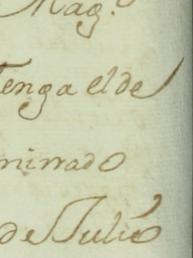 Mag.
Tenga el de
mirrado
de Julio